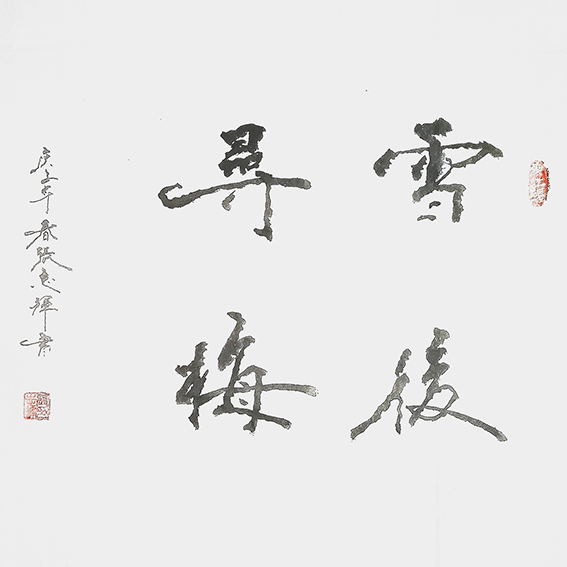 雪後
尋梅
庚子年春張志輝書